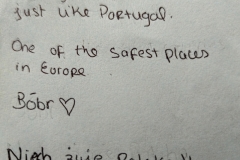 just like Portugal.
One of the safest places
in Europe
Bóbr ♡